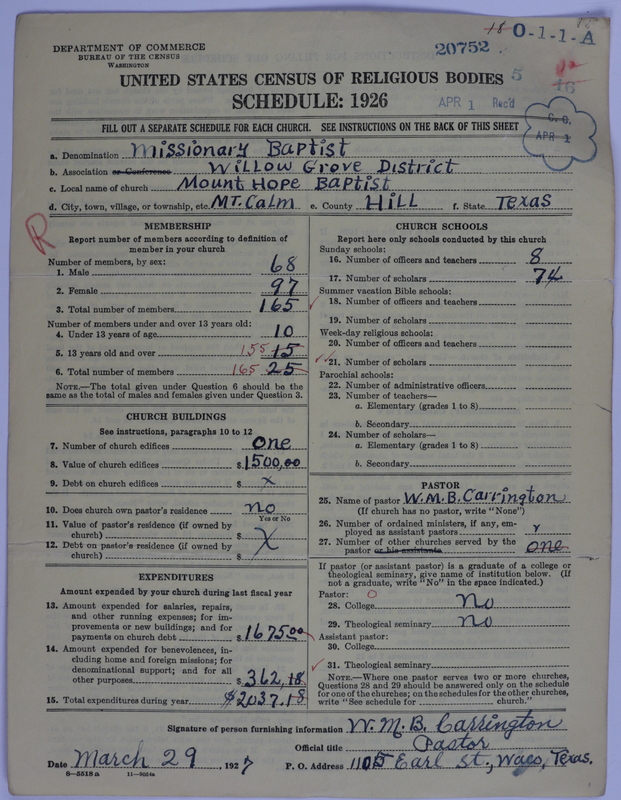 18 O-1-1-A
20752
DEPARTMENT OF COMMERCE
BUREAU OF THE CENSUS
WASHINGTON
UNITED STATES CENSUS OF RELIGIOUS BODIES
5
46
SCHEDULE: 1926
APR 1 Rec'd
FILL OUT A SEPARATE SCHEDULE FOR EACH CHURCH. SEE INSTRUCTIONS ON THE BACK OF THIS SHEET
C. O.
APR 1
a. Denomination Missionary Baptist
b. Association or Conference Willow Grove District
c. Local name of church Mount Hope Baptist
d. City, town, village, or township, etc. MT. Calm e. County Hill f. State Texas
R
MEMBERSHIP
Report number of members according to definition of
member in your church
Number of members, by sex:
1. Male 68
2. Female 97
3. Total number of members 165
Number of members under and over 13 years old:
4. Under 13 years of age 10
5. 13 years old and over 155 15
6. Total number of members 165 25
NOTE.—The total given under Question 6 should be the
same as the total of males and females given under Question 3.
CHURCH BUILDINGS
See instructions, paragraphs 10 to 12
7. Number of church edifices one
8. Value of church edifices $1500,00
9. Debt on church edifices $ x
10. Does church own pastor's residence? no
Yes or No
11. Value of pastor's residence (if owned by
church) $ X
12. Debt on pastor's residence (if owned by
church) $
EXPENDITURES
Amount expended by your church during last fiscal year
13. Amount expended for salaries, repairs,
and other running expenses; for im-
provements or new buildings; and for
payments on church debt $1675.00
14. Amount expended for benevolences, in-
cluding home and foreign missions; for
denominational support; and for all
other purposes $362,18
15. Total expenditures during year $2037.18
CHURCH SCHOOLS
Report here only schools conducted by this church
Sunday schools:
16. Number of officers and teachers 8
17. Number of scholars 74
Summer vacation Bible schools:
18. Number of officers and teachers
19. Number of scholars
Week-day religious schools:
20. Number of officers and teachers
21. Number of scholars
Parochial schools:
22. Number of administrative officers
23. Number of teachers—
a. Elementary (grades 1 to 8)
b. Secondary
24. Number of scholars—
a. Elementary (grades 1 to 8)
b. Secondary
PASTOR
25. Name of pastor W.M.B. Carrington
(If church has no pastor, write "None")
26. Number of ordained ministers, if any, em-
ployed as assistant pastors
27. Number of other churches served by the
pastor or his assistants one
If pastor (or assistant pastor) is a graduate of a college or
theological seminary, give name of institution below. (If
not a graduate, write "No" in the space indicated.)
Pastor: O
28. College no
29. Theological seminary no
Assistant pastor:
30. College
31. Theological seminary
NOTE.—Where one pastor serves two or more churches,
Questions 28 and 29 should be answered only on the schedule
for one of the churches; on the schedules for the other churches,
write "See schedule for church."
Signature of person furnishing information W.M.B. Carrington
Official title Pastor
Date March 29, 1927 P. O. Address 1105 Earl St., Waco, Texas.
8—5518a 11—9054a